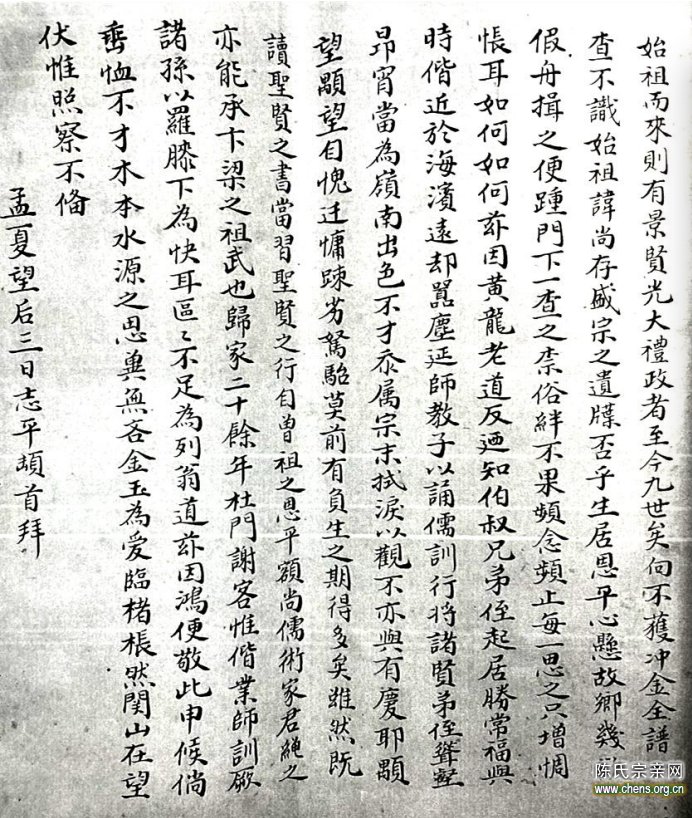 始祖而來則有景賢光大禮政者至今九世矣向不獲冲金全譜
查不識始祖諱尚存盛宗之遺牒否乎生居恩平心懸故鄉幾
假舟揖之便踵門下一查之柰俗絆不果頻念頻止每一思之只增惆
悵耳如何如何茲因黃龍老道反廻知伯叔兄弟侄起居勝常福與
時偕近於海濱遠却囂塵延師教子以誦儒訓行将諸賢弟侄聳壑
昂霄當為嶺南出色不才忝属宗末拭淚以觀不亦與有慶耶顒
望顒望自愧迂慵踈劣駑駘莫前有負生之期得多矣雖然既
讀聖賢之書當習聖賢之行自曽祖之恩平額尚儒術家君繩之
亦能承卞梁之祖武也歸家二十餘年杜門謝客惟偕業師訓厥
諸孫以羅膝下為快耳區〻不足為列翁道茲因鴻便敬此申候倘
垂恤不才木本水源之思兾無吝金玉為愛臨楮悵然関山在望
伏惟照察不俻
孟夏望后三日志平頓首拜
陈氏宗亲网
www.chens.org.cn